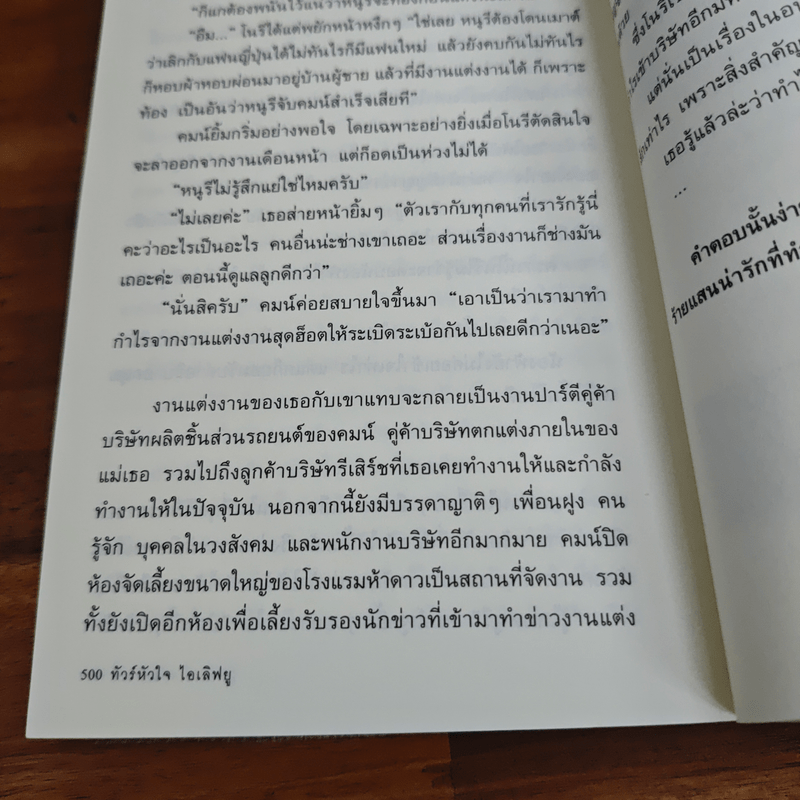 "ก็แกต้องพนันไว้แน่ว่าหนูรีจะท้องก่อนแต่ง
"อืม..." โนรีได้แต่พยักหน้าหงึกๆ "ใช่เลย หนูรีต้องโดนเมาต์
ว่าเลิกกับแฟนญี่ปุ่นได้ไม่ทันไรก็มีแฟนใหม่ แล้วยังคบกันไม่ทันไร
ก็หอบผ้าหอบผ่อนมาอยู่บ้านผู้ชาย แล้วที่มีงานแต่งงานได้ ก็เพราะ
ท้อง เป็นอันว่าหนูรีจับคมน์สำเร็จเสียที"
คมน์ยิ้มกริ่มอย่างพอใจ โดยเฉพาะอย่างยิ่งเมื่อโนรีตัดสินใจ
จะลาออกจากงานเดือนหน้า แต่ก็อดเป็นห่วงไม่ได้
"หนูรีไม่รู้สึกแย่ใช่ไหมครับ"
"ไม่เลยค่ะ" เธอส่ายหน้ายิ้มๆ "ตัวเรากับทุกคนที่เรารักรู้นี่
คะว่าอะไรเป็นอะไร คนอื่นน่ะช่างเขาเถอะ ส่วนเรื่องงานก็ช่างมัน
เถอะค่ะ ตอนนี้ดูแลลูกดีกว่า"
"นั่นสิครับ" คมน์ค่อยสบายใจขึ้นมา "เอาเป็นว่าเรามาทำ
กำไรจากงานแต่งงานสุดฮ็อตให้ระเบิดระเบ้อกันไปเลยดีกว่าเนอะ"
งานแต่งงานของเธอกับเขาแทบจะกลายเป็นงานปาร์ตีคู่ค้า
บริษัทผลิตชิ้นส่วนรถยนต์ของคมน์ คู่ค้าบริษัทตกแต่งภายในของ
แม่เธอ รวมไปถึงลูกค้าบริษัทรีเสิร์ชที่เธอเคยทำงานให้และกำลัง
ทำงานให้ในปัจจุบัน นอกจากนี้ยังมีบรรดาญาติๆ เพื่อนฝูง คน
รู้จัก บุคคลในวงสังคม และพนักงานบริษัทอีกมากมาย คมน์ปิด
ห้องจัดเลี้ยงขนาดใหญ่ของโรงแรมห้าดาวเป็นสถานที่จัดงาน รวม
ทั้งยังเปิดอีกห้องเพื่อเลี้ยงรับรองนักข่าวที่เข้ามาทำข่าวงานแต่ง
500 ทัวร์หัวใจ ไอเลิฟยู
ซึ่งโนรี
เข้าบริษัทอีกมา
แต่นั่นเป็นเรื่องใน
เท่าไร เพราะสิ่งสำคัญ
เธอรู้แล้วล่ะว่าทำไ
...
คำตอบนั้นง่าย
ร้ายแสนน่ารักที่ทำ